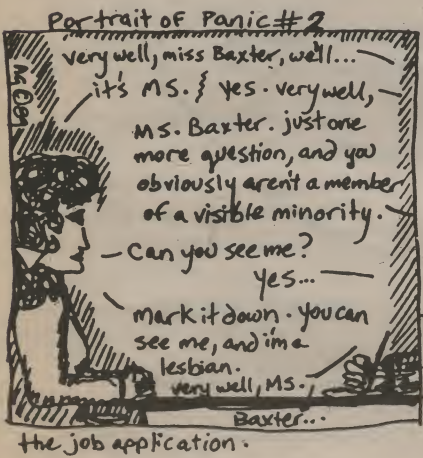 Portrait of Panic #2
very well, miss Baxter, we'll...
it's MS. } yes. very well,
MS. Baxter. just one
more question, and you
obviously aren't a member
of a visible minority.
Can you see me?
yes...
mark it down. you can
see me, and i'm a
lesbian.
very well, MS.
Baxter...
the job application.